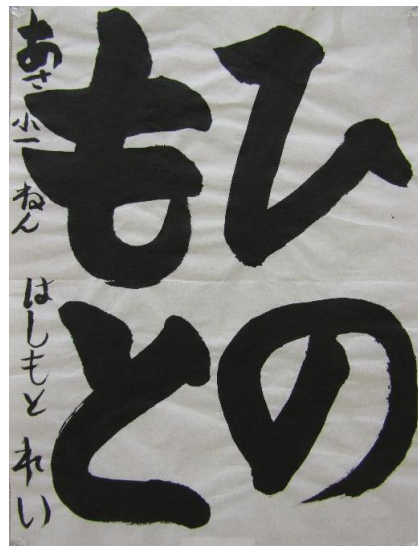 ひの
もと
あさ小一ねん はしもと れい